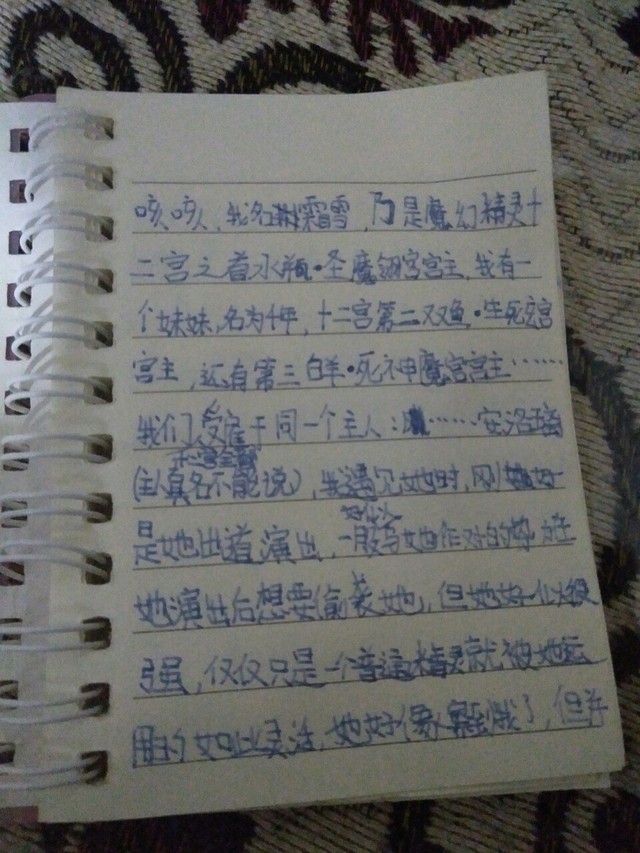 咳咳,我名霜雪,乃是魔幻精灵十
二宫之首水瓶·圣魔翎宫宫主,我有一
个妹妹,名为年,十二宫第二双鱼·生死宫
宫主,还有第三白羊·死神魔宫宫主……
我们受雇于同一个主人:……安洛璃
(主人真名不能说),我遇见她时,刚好
是她出道演出,一股与她作对的
她演出后想要偷袭她,但她好似很
强,仅仅只是一个普通精灵就被她运
用的如此灵活,她好像了,但并